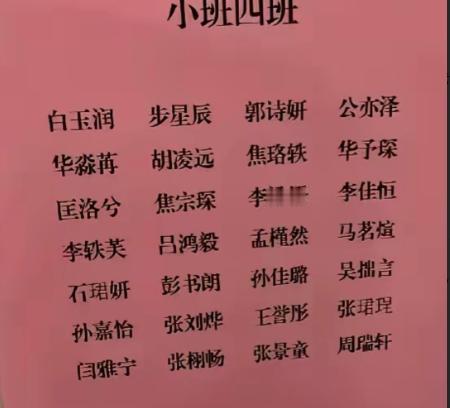 小班四班
白玉润 步星辰 郭诗妍 公亦泽
华淼苒 胡凌远 焦珞轶 华予琛
匡洛兮 焦宗琛 李 李佳恒
李轶芙 吕鸿毅 孟槿然 马茗煊
石珺妍 彭书朗 孙佳璐 吴拙言
孙嘉怡 张刘烨 王誉彤 张珺珵
闫雅宁 张栩畅 张景童 周瑞轩